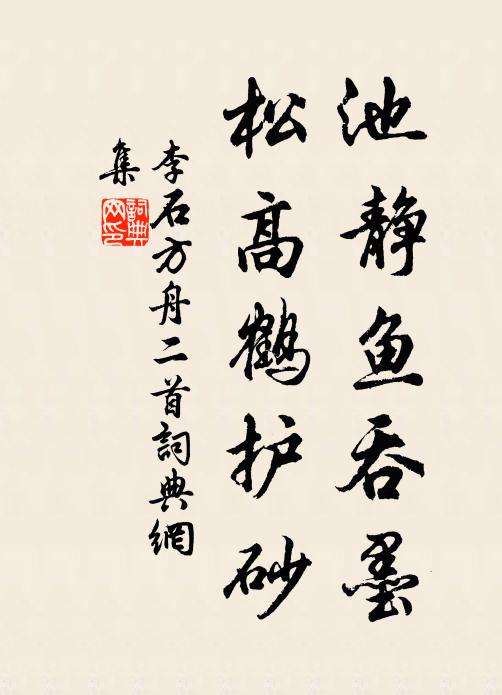 池静鱼吞墨
松高鹤护砂
李石方舟二首詞典網
集
詞典
网印